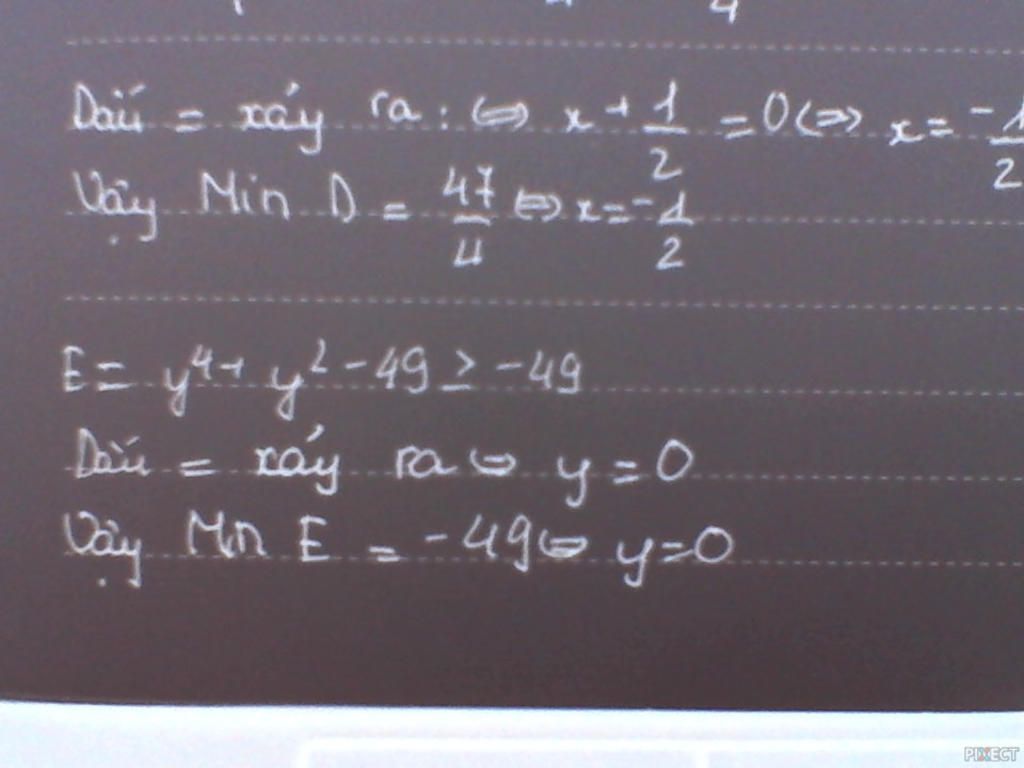 4
Dấu = xảy ra : ⇔ x + 1/2 = 0 ⇔ x = -1/2
Vậy Min D = 47/4 ⇔ x = -1/2
E = y⁴ + y² - 49 ≥ -49
Dấu = xảy ra ⇔ y = 0
Vậy Min E = -49 ⇔ y = 0
PIXECT